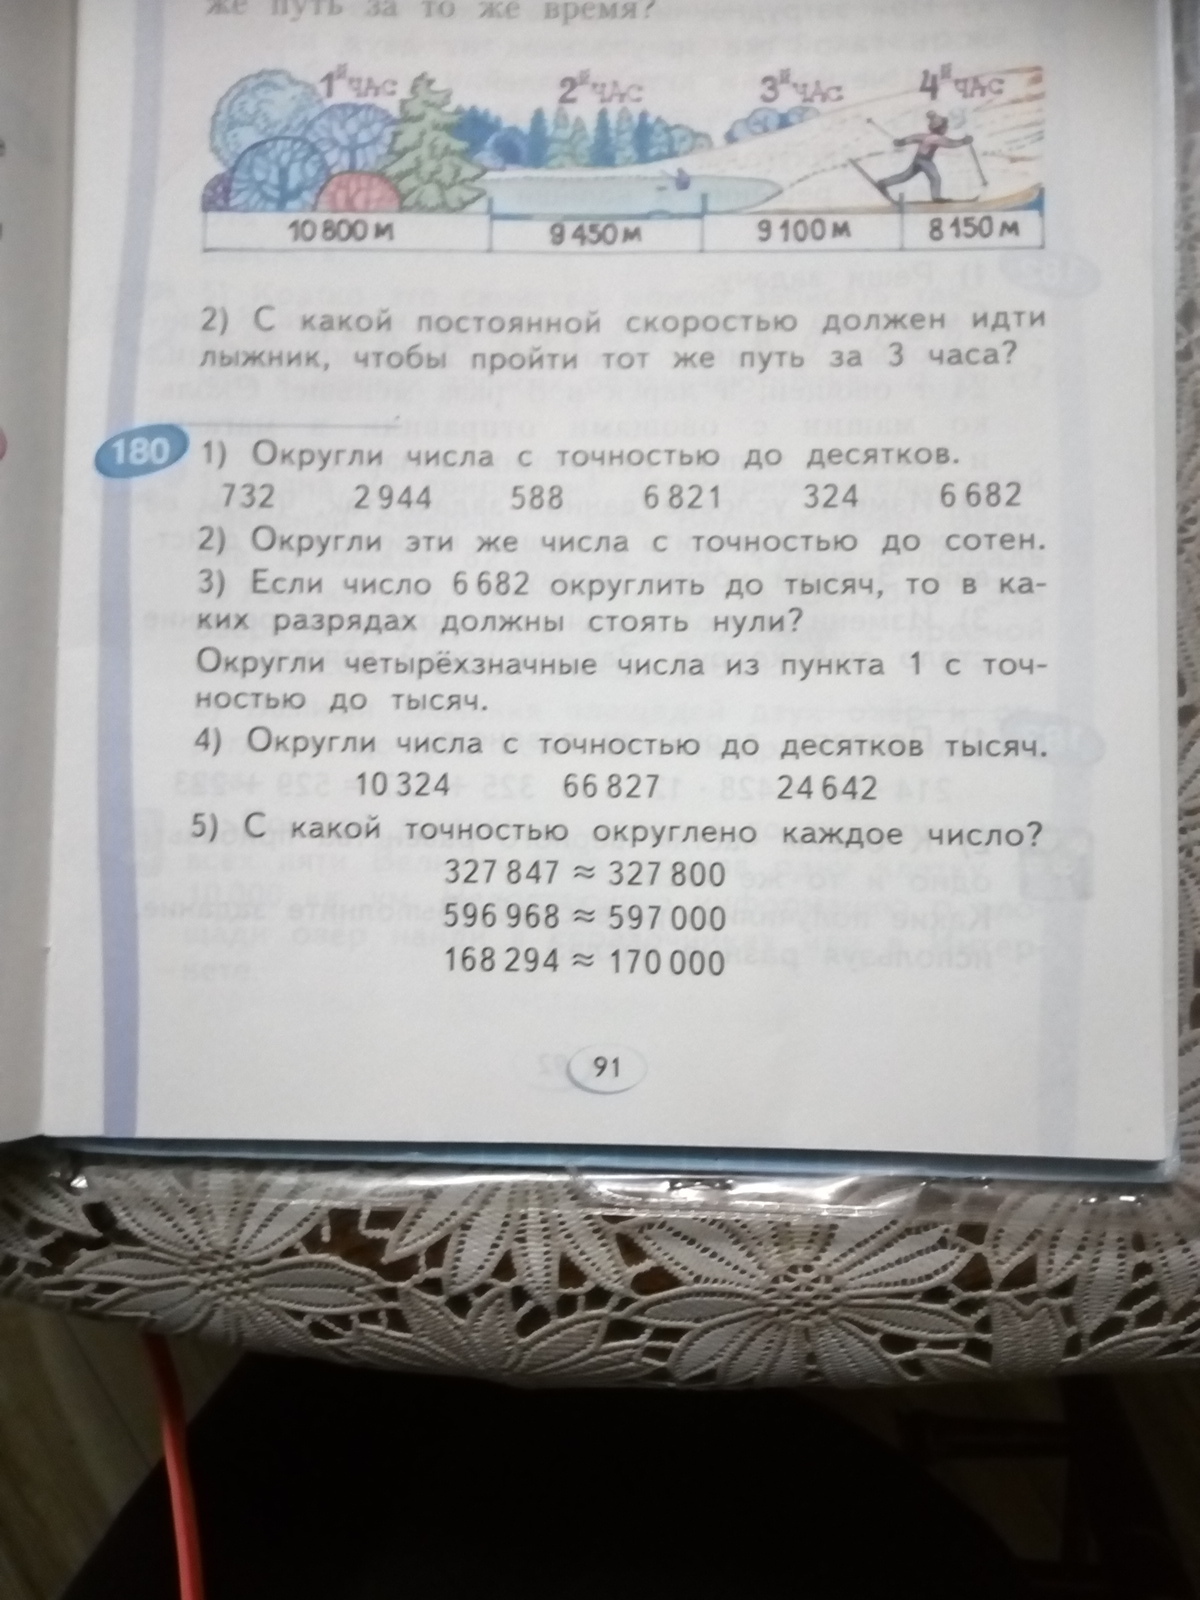 же путь за то же время?
1й час 2й час 3й час 4й час
10 800 м 9 450 м 9 100 м 8 150 м
2) С какой постоянной скоростью должен идти
лыжник, чтобы пройти тот же путь за 3 часа?
180 1) Округли числа с точностью до десятков.
732 2 944 588 6 821 324 6 682
2) Округли эти же числа с точностью до сотен.
3) Если число 6 682 округлить до тысяч, то в ка-
ких разрядах должны стоять нули?
Округли четырёхзначные числа из пункта 1 с точ-
ностью до тысяч.
4) Округли числа с точностью до десятков тысяч.
10 324 66 827 24 642
5) С какой точностью округлено каждое число?
327 847 ≈ 327 800
596 968 ≈ 597 000
168 294 ≈ 170 000
91